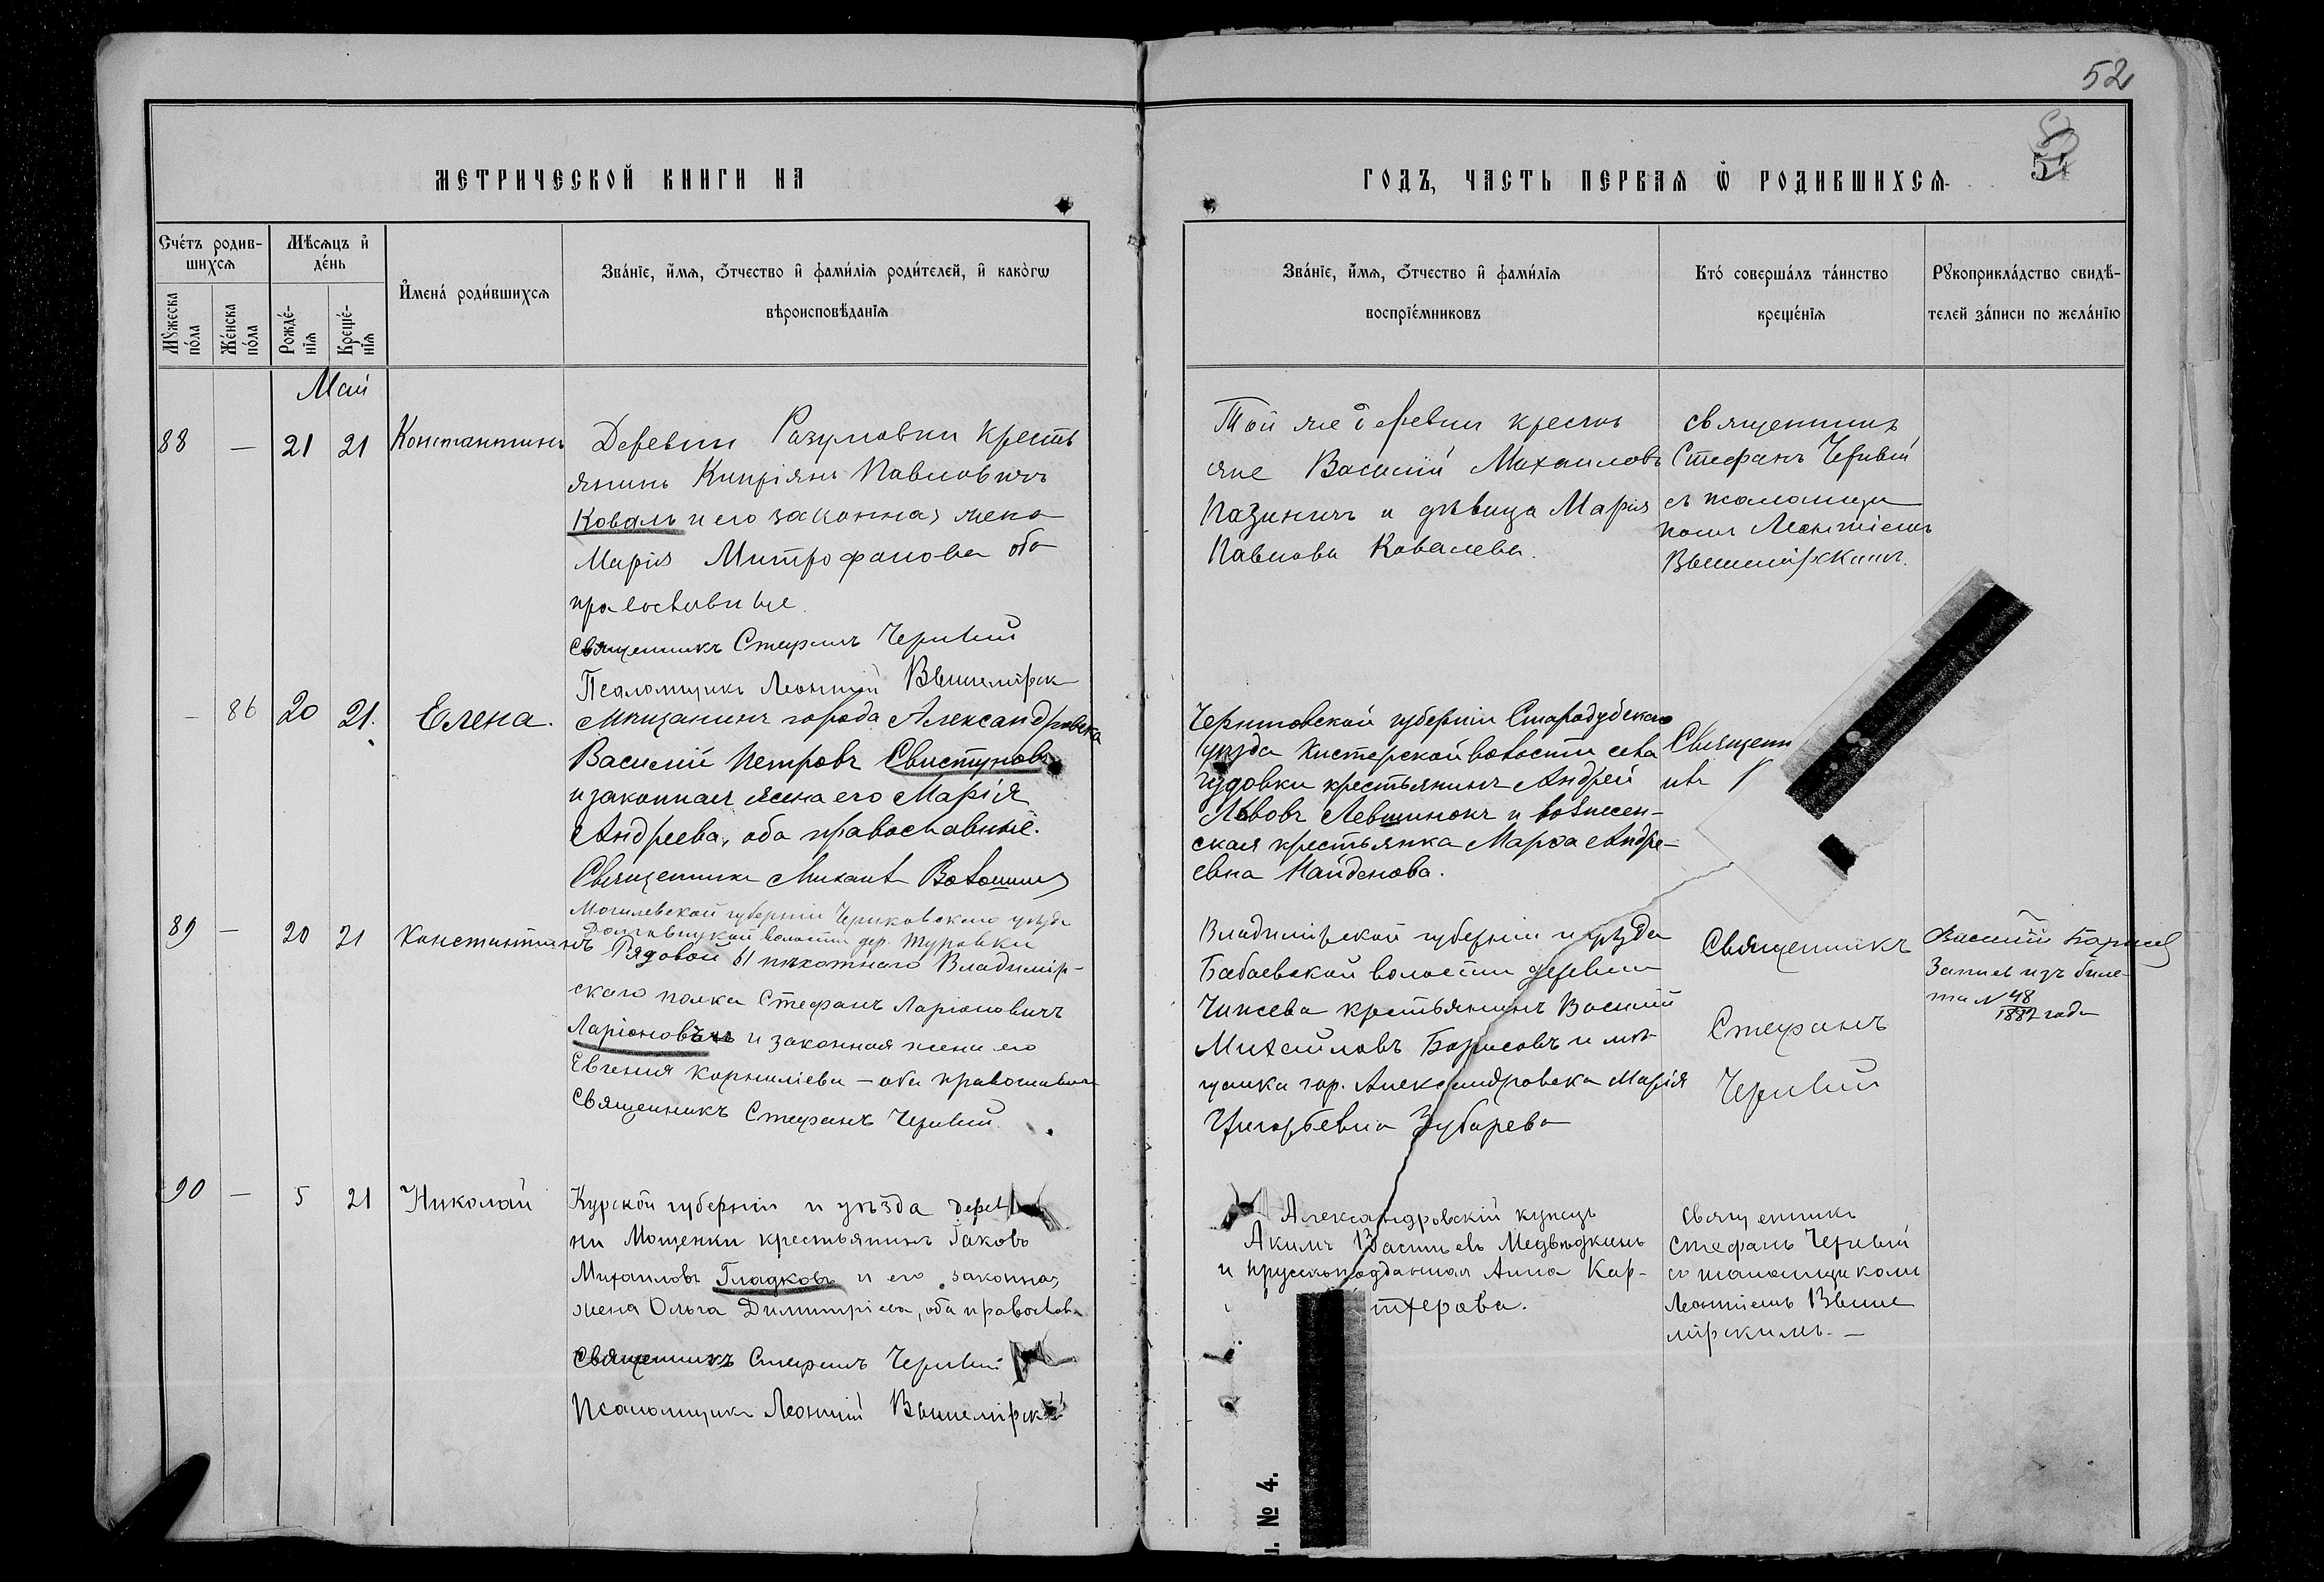 52
54
МЕТРИЧЕСКОЙ КНИГИ НА
ГОДЪ, ЧАСТЬ ПЕРВАЯ Ѿ РОДИВШИХСѦ
Сче́тъ родив-
шихсѧ
Мѣ́сѧцъ и҆
де́нь
И҆мена́ роди́вшихсѧ
Зва́нїе, и҆́мѧ, ѻ҆́тчество и҆ фами́лїѧ роди́телей, и҆ како́гѡ
вѣроисповѣ́данїѧ
Мꙋ́жеска
по́ла
Же́нска
по́ла
Рожде́-
нїѧ
Креще́-
нїѧ
Зва́нїе, и҆́мѧ, ѻ҆́тчество и҆ фами́лїѧ
воспрїе́мниковъ
Кто́ соверша́лъ та́инство
креще́нїѧ
Рꙋкоприкла́дство свидѣ́-
телей за́писи по жела́нїю
Май
88 — 21 21 Константинъ
Деревни Разумовки кресть
янинъ Кипріянъ Павловичъ
Коваль и его законная жена
Марія Митрофанова оба
православные.
Священникъ Стефанъ Червий
Псаломщикъ Леонтий Вышемірск
Той же деревни крестья
яне Василий Михаиловъ
Пазиничъ и дѣвица Марія
Павлова Ковалева.
священникъ
Стефанъ Червий
съ псаломщи
комъ Леонтіемъ
Вышемірскимъ.
— 86 20 21. Елена.
Мѣщанинъ города Александровска
Василій Петровъ Свистуновъ
и законная жена его Марія
Андреева, оба православные.
Священникъ Михаил Волошинъ
Черниговской губерніи Стародубскаго
уѣзда Кистерской волости села
Гудовки крестьянинъ Андрей
Львовъ Левшинокъ и вознесен-
ская крестьянка Марѳа Андре-
евна Найденова.
Священн
89 — 20 21 Константинъ
Могилевской губерніи Чериковскаго уѣзда
волости дер. Туровки
Рядовой 61 пѣхотнаго Владимір-
скаго полка Стефанъ Ларіоновичъ
Ларіоновъ и законная жена его
Евгения Корниліева — оба православные
Священникъ Стефанъ Червий
Владимірской губерніи и уѣзда
Бабаевской волости деревни
крестьянинъ Василий
Михайловъ Борисовъ и мѣ-
щанка гор. Александровска Марія
Григорьевна Зубарева
Священникъ
Стефанъ
Червий
Василий Борисов
Запись изъ биле-
та № 48
1887 года
90 — 5 21 Николай
Курской губерніи и уѣзда дерев
ни Мощенки крестьянинъ Іаковъ
Михаиловъ Гладковъ и его законная
жена Ольга Димитріева, оба православн
Священникъ Стефанъ Червий
Псаломщикъ Леонтий Вышемірский
Александровскій купецъ
Акимъ Васильевъ Медвѣдкинъ
и прусскоподданная Анна Кар-
терова.
священникъ
Стефанъ Червий
съ псаломщикомъ
Леонтіемъ Выше
мірскимъ. —
№ 4.